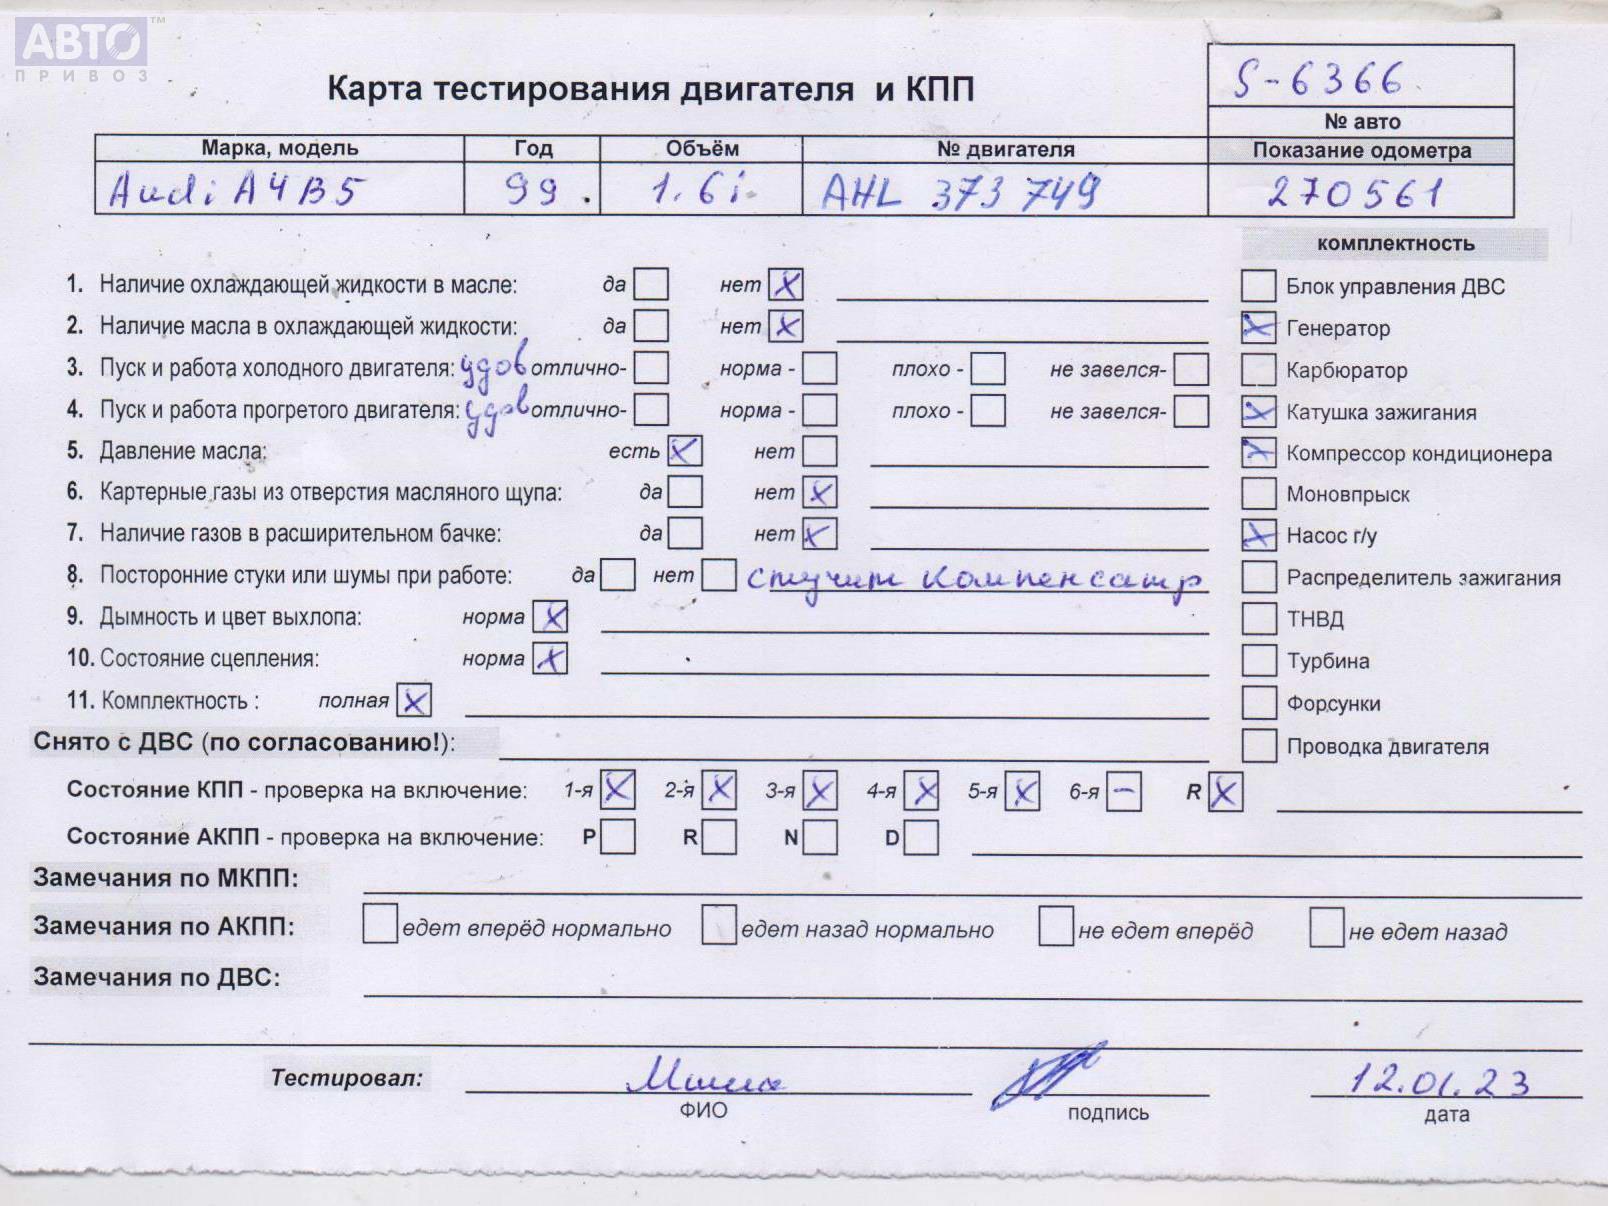 АВТО™
ПРИВОЗ
Карта тестирования двигателя и КПП
S-6366
№ авто
Марка, модель Год Объём № двигателя Показание одометра
Audi A4B5 99. 1.6i. AHL 373 749 270561
комплектность
1. Наличие охлаждающей жидкости в масле: да нет X Блок управления ДВС
2. Наличие масла в охлаждающей жидкости: да нет X X Генератор
3. Пуск и работа холодного двигателя: удов отлично- норма - плохо - не завелся- Карбюратор
4. Пуск и работа прогретого двигателя: удов отлично- норма - плохо - не завелся- X Катушка зажигания
5. Давление масла: есть X нет X Компрессор кондиционера
6. Картерные газы из отверстия масляного щупа: да нет X Моновпрыск
7. Наличие газов в расширительном бачке: да нет X X Насос г/у
8. Посторонние стуки или шумы при работе: да нет стучит компенсатр Распределитель зажигания
9. Дымность и цвет выхлопа: норма X ТНВД
10. Состояние сцепления: норма X Турбина
11. Комплектность : полная X Форсунки
Снято с ДВС (по согласованию!): Проводка двигателя
Состояние КПП - проверка на включение: 1-я X 2-я X 3-я X 4-я X 5-я X 6-я – R X
Состояние АКПП - проверка на включение: P R N D
Замечания по МКПП:
Замечания по АКПП: едет вперёд нормально едет назад нормально не едет вперёд не едет назад
Замечания по ДВС:
Тестировал: Миша 12.01.23
ФИО подпись дата